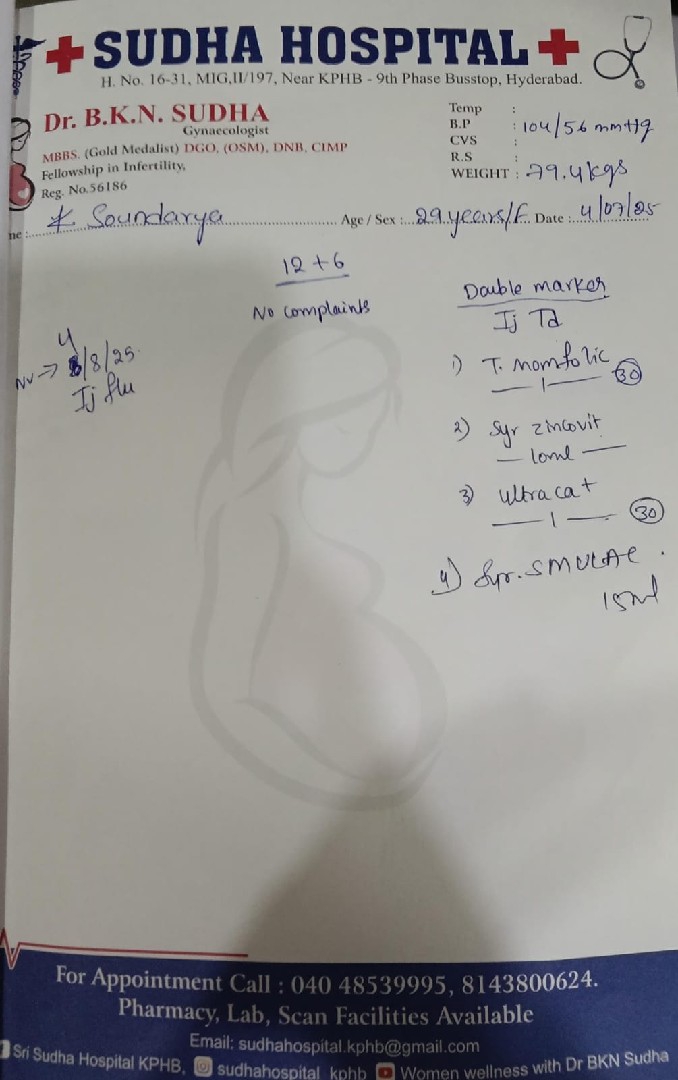 SUDHA HOSPITAL
H. No. 16-31, MIG,II/197, Near KPHB - 9th Phase Busstop, Hyderabad.
Dr. B.K.N. SUDHA
Gynaecologist
MBBS. (Gold Medalist) DGO, (OSM), DNB, CIMP
Fellowship in Infertility,
Reg. No.56186
Temp :
B.P : 104/56 mmHg
CVS :
R.S :
WEIGHT : 79.4kgs
K Soundarya Age / Sex : 29 years/F Date : 4/07/25
12 + 6
No complaints
NV → 4/8/25
Ij flu
Double marker
Ij Td
1) T. momfolic
— 1 — 30
2) Syr zincovit
— 10ml —
3) ultracat
— 1 — 30
4) Syr. SMULAC
15ml
For Appointment Call : 040 48539995, 8143800624.
Pharmacy, Lab, Scan Facilities Available
Email: sudhahospital.kphb@gmail.com
Sri Sudha Hospital KPHB, sudhahospital_kphb Women wellness with Dr BKN Sudha